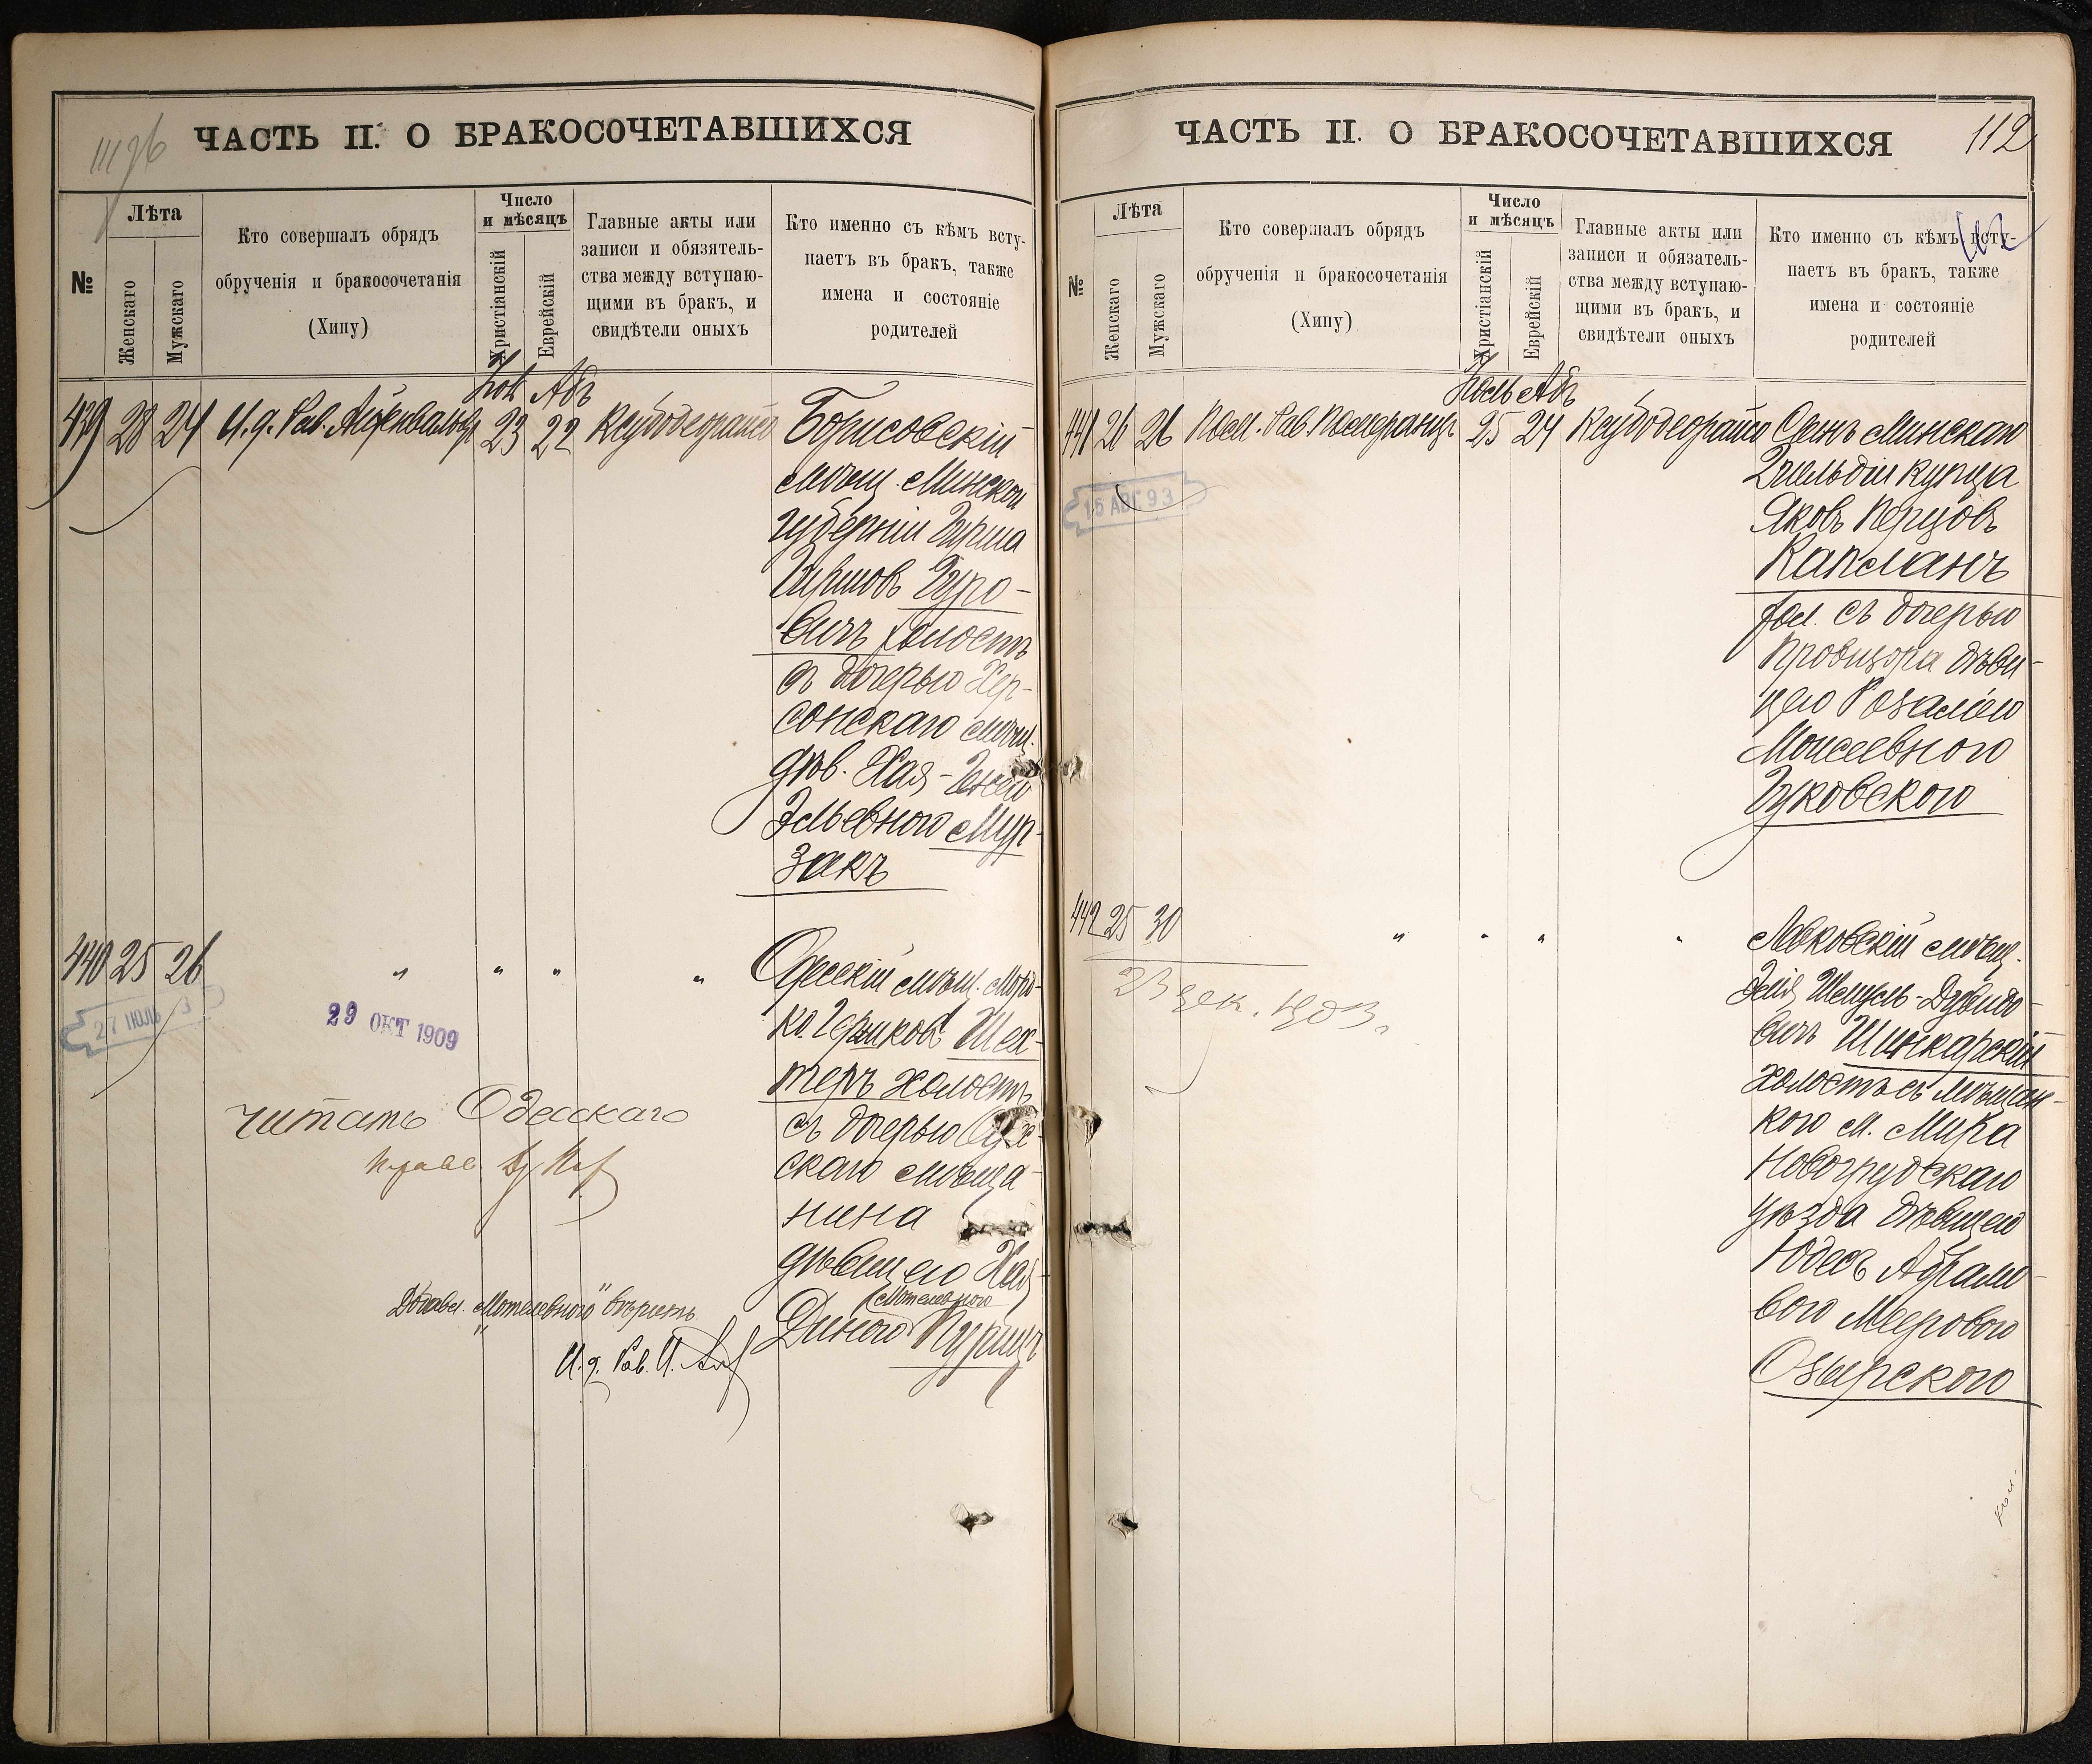 ЧАСТЬ II. О БРАКОСОЧЕТАВШИХСЯ
№
Лѣта
Женскаго
Мужскаго
Кто совершалъ обрядъ
обрученія и бракосочетанія
(Хипу)
Число
и мѣсяцъ
Христіанскій
Еврейскій
Главные акты или
записи и обязятель-
ства между вступаю-
щими въ бракъ, и
свидѣтели оныхъ
Кто именно съ кѣмъ всту-
паетъ въ бракъ, также
имена и состояніе
родителей
Абъ
439 28 24 И. д. Рав. 23 22
Борисовскій
мѣщ. Минской
губерніи Гирша
Гуро-
вичъ холостъ
съ дочерью Хер-
сонскаго мѣщ.
дѣв. Хая-
Эльевною Мур-
закъ
440 25 26 " " " "
Одесскій мѣщ. Морд-
ко Шех-
теръ холостъ
съ дочерью
скаго мѣща-
нина
дѣвицею Хая-
Мотелевною
Диною Пурицъ
27 ІЮЛЬ
29 ОКТ 1909
читать Одесскаго
"Мотелевною" вѣрить
И. д. Рав. И.
ЧАСТЬ II. О БРАКОСОЧЕТАВШИХСЯ
112
112
№
Лѣта
Женскаго
Мужскаго
Кто совершалъ обрядъ
обрученія и бракосочетанія
(Хипу)
Число
и мѣсяцъ
Христіанскій
Еврейскій
Главные акты или
записи и обязатель-
ства между вступаю-
щими въ бракъ, и
свидѣтели оныхъ
Кто именно съ кѣмъ всту-
паетъ въ бракъ, также
имена и состояніе
родителей
Іюль Абъ
441 26 26 Пом. Рав. Померанцъ 25 24
Сынъ Минскаго
2 гильдіи купца
Яковъ Перцовъ
Капланъ
хол. съ дочерью
провизора дѣви-
цею Розаліею
Моисеевною
Гуковскою
15 АВГ 93
442 25 30 " " " "
23 дек. 1903
мѣщ.
Шмуель-Давидо-
вичъ Шинкарскій
холостъ съ мѣщан-
кою м. Мира
Новогрудскаго
уѣзда дѣвицею
Юдесъ Абрамо-
вою Мееровою
Озырскою